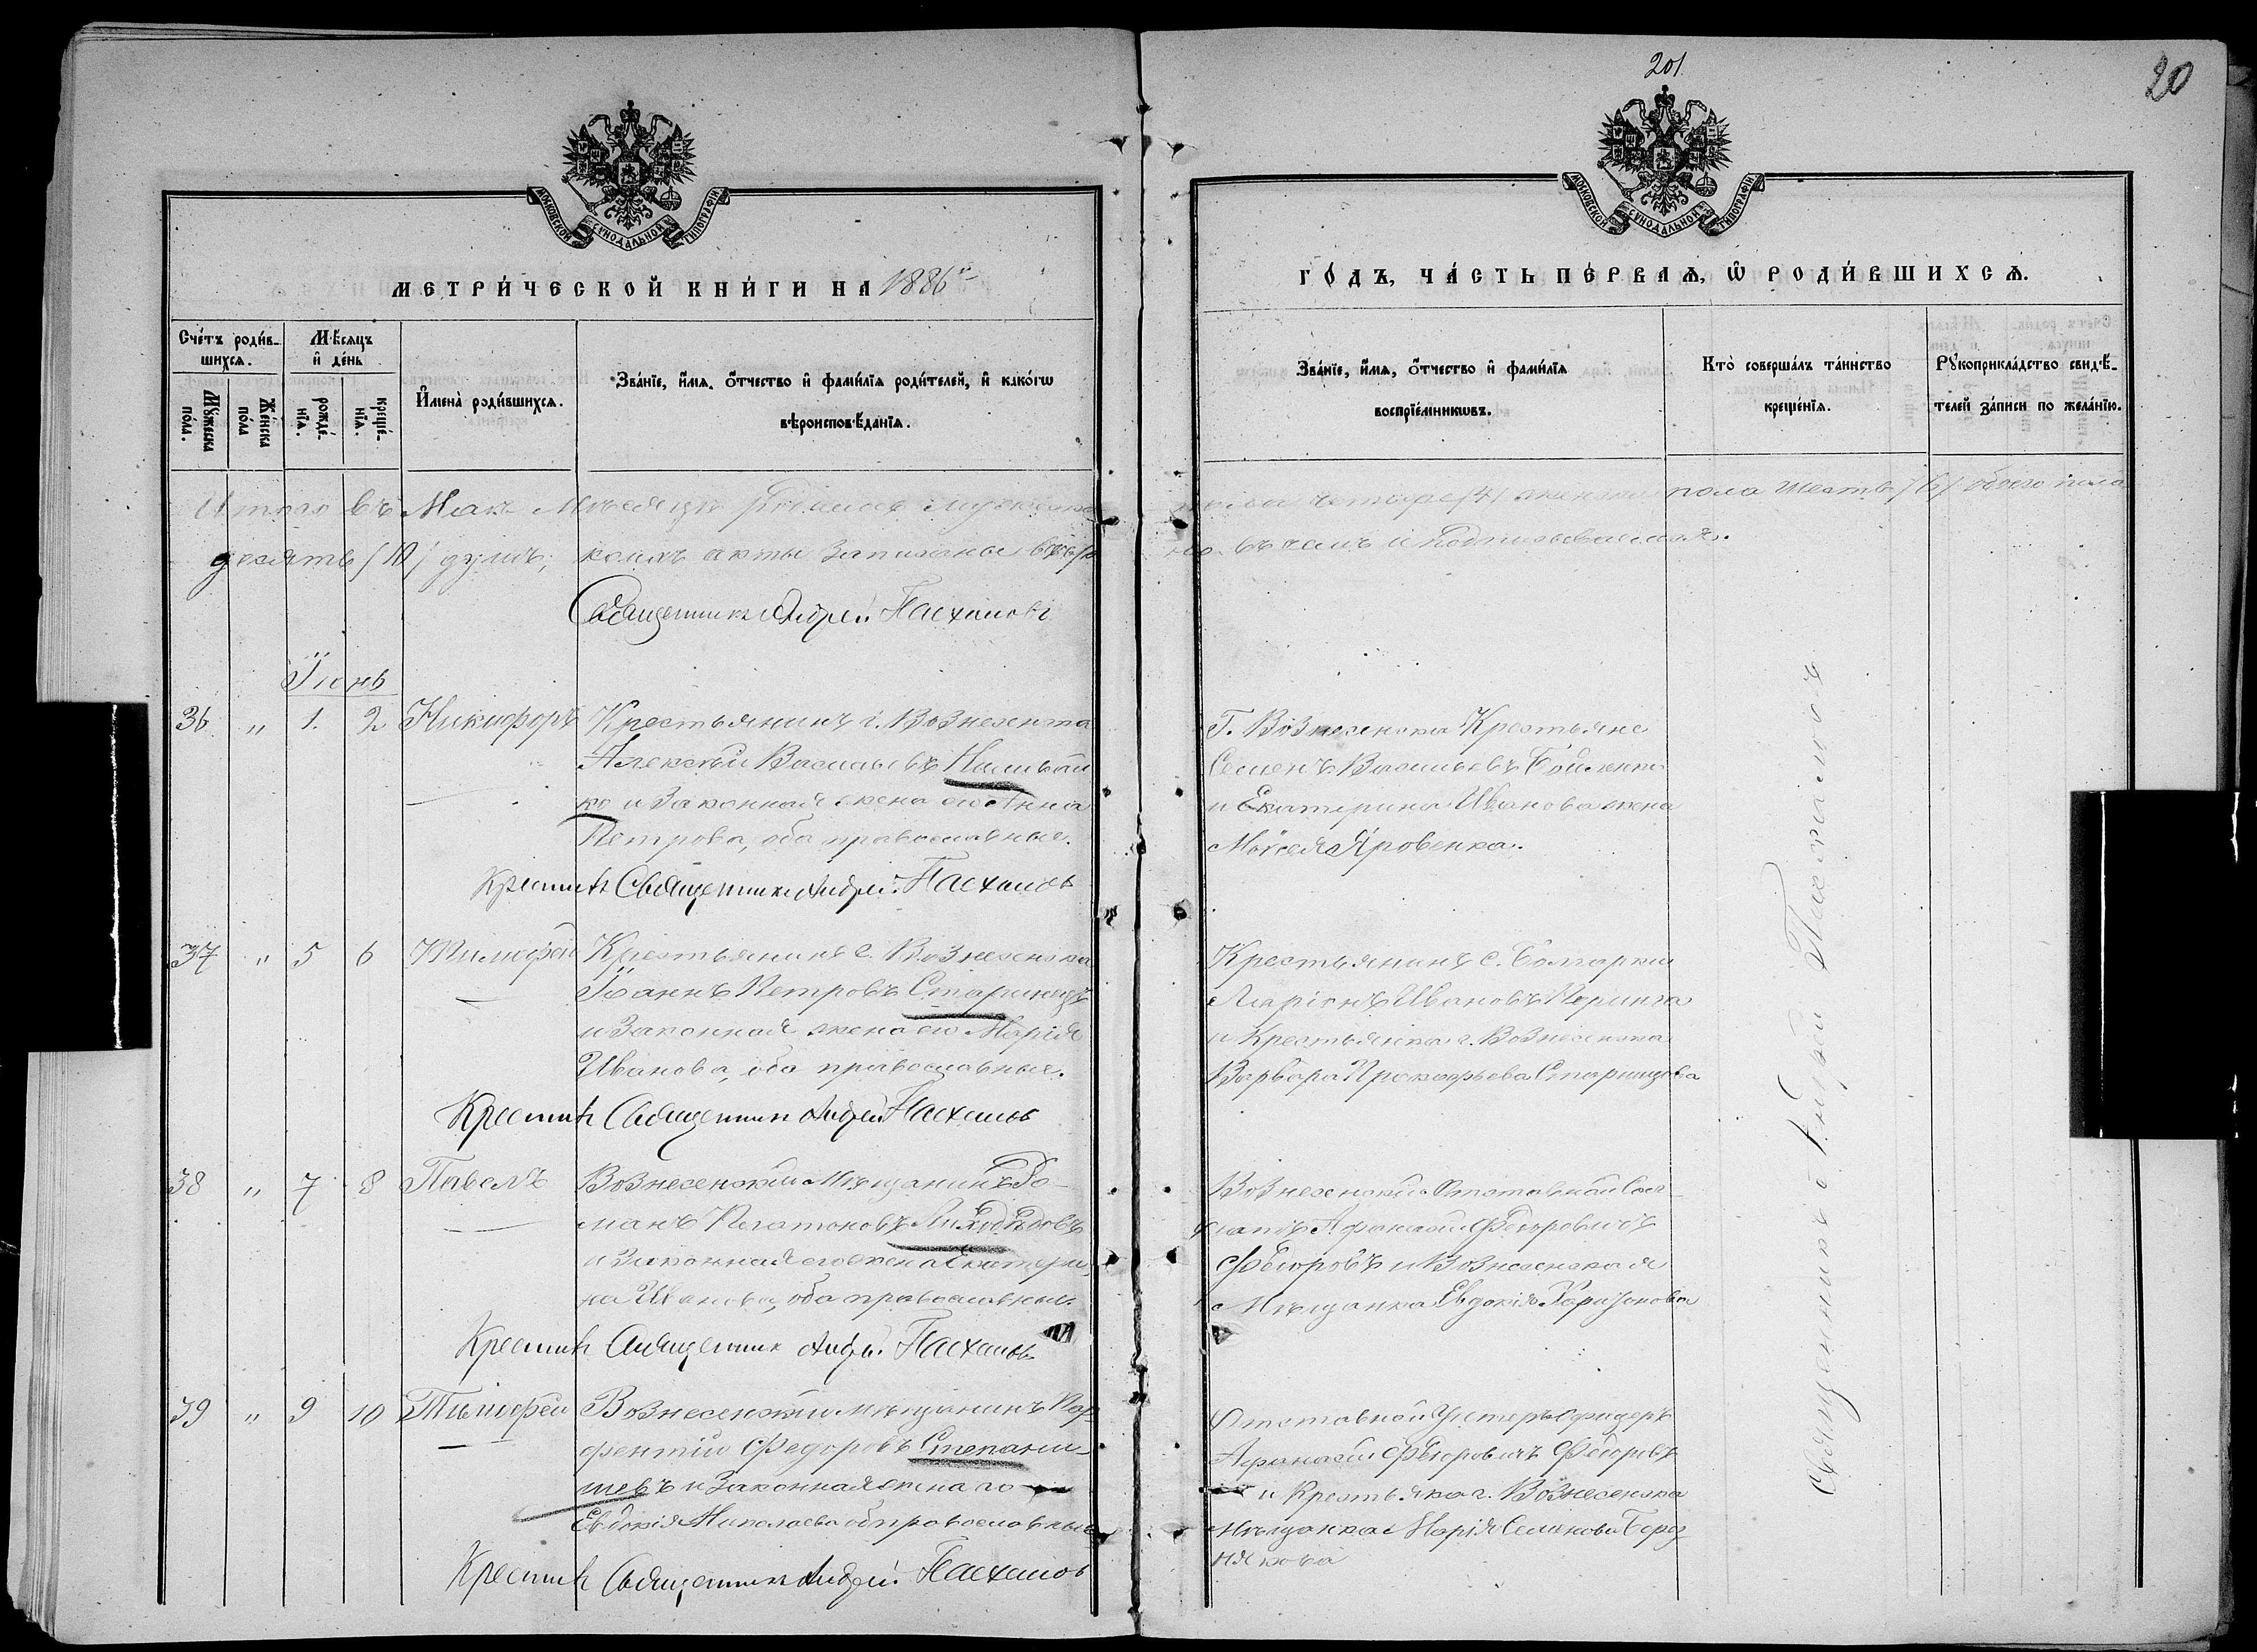 201.
20
МОСКОВСКОЙ СУНОДАЛЬНОЙ ТИПОГРАФІИ
МОСКОВСКОЙ СУНОДАЛЬНОЙ ТИПОГРАФІИ
МЕТРИ́ЧЕСКОЙ КНИ́ГИ НА 1886й
ГО́ДЪ, ЧА́СТЬ ПЕ́РВАѦ, Ѡ҆ РОДИ́ВШИХСѦ.
Сче́тъ роди́в-
шихсѧ.
Мꙋ́жеска
по́ла.
Же́нска
по́ла
Мѣ́сѧцъ
и҆ де́нь
рожде́-
нїѧ.
креще́-
нїѧ.
И҆мена̀ роди́вшихсѧ.
Зва́нїе, и҆́мѧ, ѻ҆́тчество и҆ фами́лїѧ роди́телей, и҆ како́гѡ
вѣроисповѣ́данїѧ.
Зва́нїе, и҆́мѧ, ѻ҆́тчество и҆ фами́лїѧ
воспрїе́мникѡвъ.
Кто̀ соверша́лъ та́инство
креще́нїѧ.
Рꙋкоприкла́дство свидѣ́-
телей за́писи по жела́нїю.
Итого въ Маѣ Мѣсяцѣ родилось мужеска пола четыре /4/ женска пола шесть /6/ обоего пола
десять /10/ душъ; коихъ акты записаны вѣрно въ чемъ и подписываемся.
Священникъ Андрей Пасхаловъ
Іюнь
36 " 1. 2 Никифоръ Крестьянинъ г. Вознесенска
Алексѣй Васильевъ
ко и законная жена его Анна
Петрова, оба православные.
Крестилъ Священникъ Андрей Пасхаловъ
Г. Вознесенска Крестьяне
Семенъ Васильевъ Бойченко
и Екатерина Иванова жена
Моѵсея Яровенка.
37 " 5 6 Тимофей Крестьянинъ г. Вознесенска
Іоаннъ Петровъ Старицевъ
и законная жена его Марія
Иванова, оба православные.
Крестилъ Священникъ Андрей Пасхаловъ
Крестьянинъ с. Болгарки
Ларіонъ Ивановъ
и Крестьянка г. Вознесенска
Варвара Прокофьева Старицева
38 " 7 8 Павелъ Вознесенскій Мѣщанинъ Ро-
манъ Платоновъ Лиходѣдовъ
и законная его жена Екатери-
на Иванова, оба православные.
Крестилъ Священникъ Андрей Пасхаловъ
Вознесенскій Отставной Сол-
датъ Афанасій Ѳедоровичъ
Ѳедоровъ и Вознесенская
Мѣщанка Евдокія Харитонова
39 " 9 10 Тимофей Вознесенскій мѣщанинъ Пар-
фентій Федоровъ Степани-
щевъ и законная жена го
Евдокія Николаева об православные
Крестилъ Священникъ Андрей Пасхаловъ
Отставной Унтеръ Офицеръ
Афанасій Ѳедоровичъ Ѳедоровъ
и Крестьяка г. Вознесенска
Мѣщанка Марія Семенова Берез
някова
Священникъ Андрей Пасхаловъ